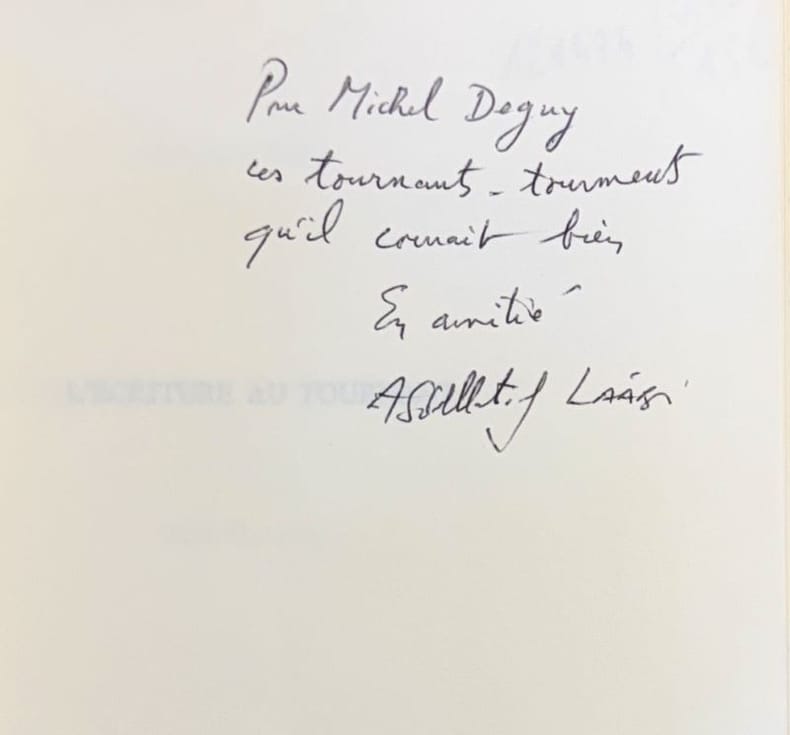 Pour Michel Deguy
ces tournants - tourments
qu'il connait bien
En amitié
Abdellatif Laâbi
L'ECRITURE AU TOUR